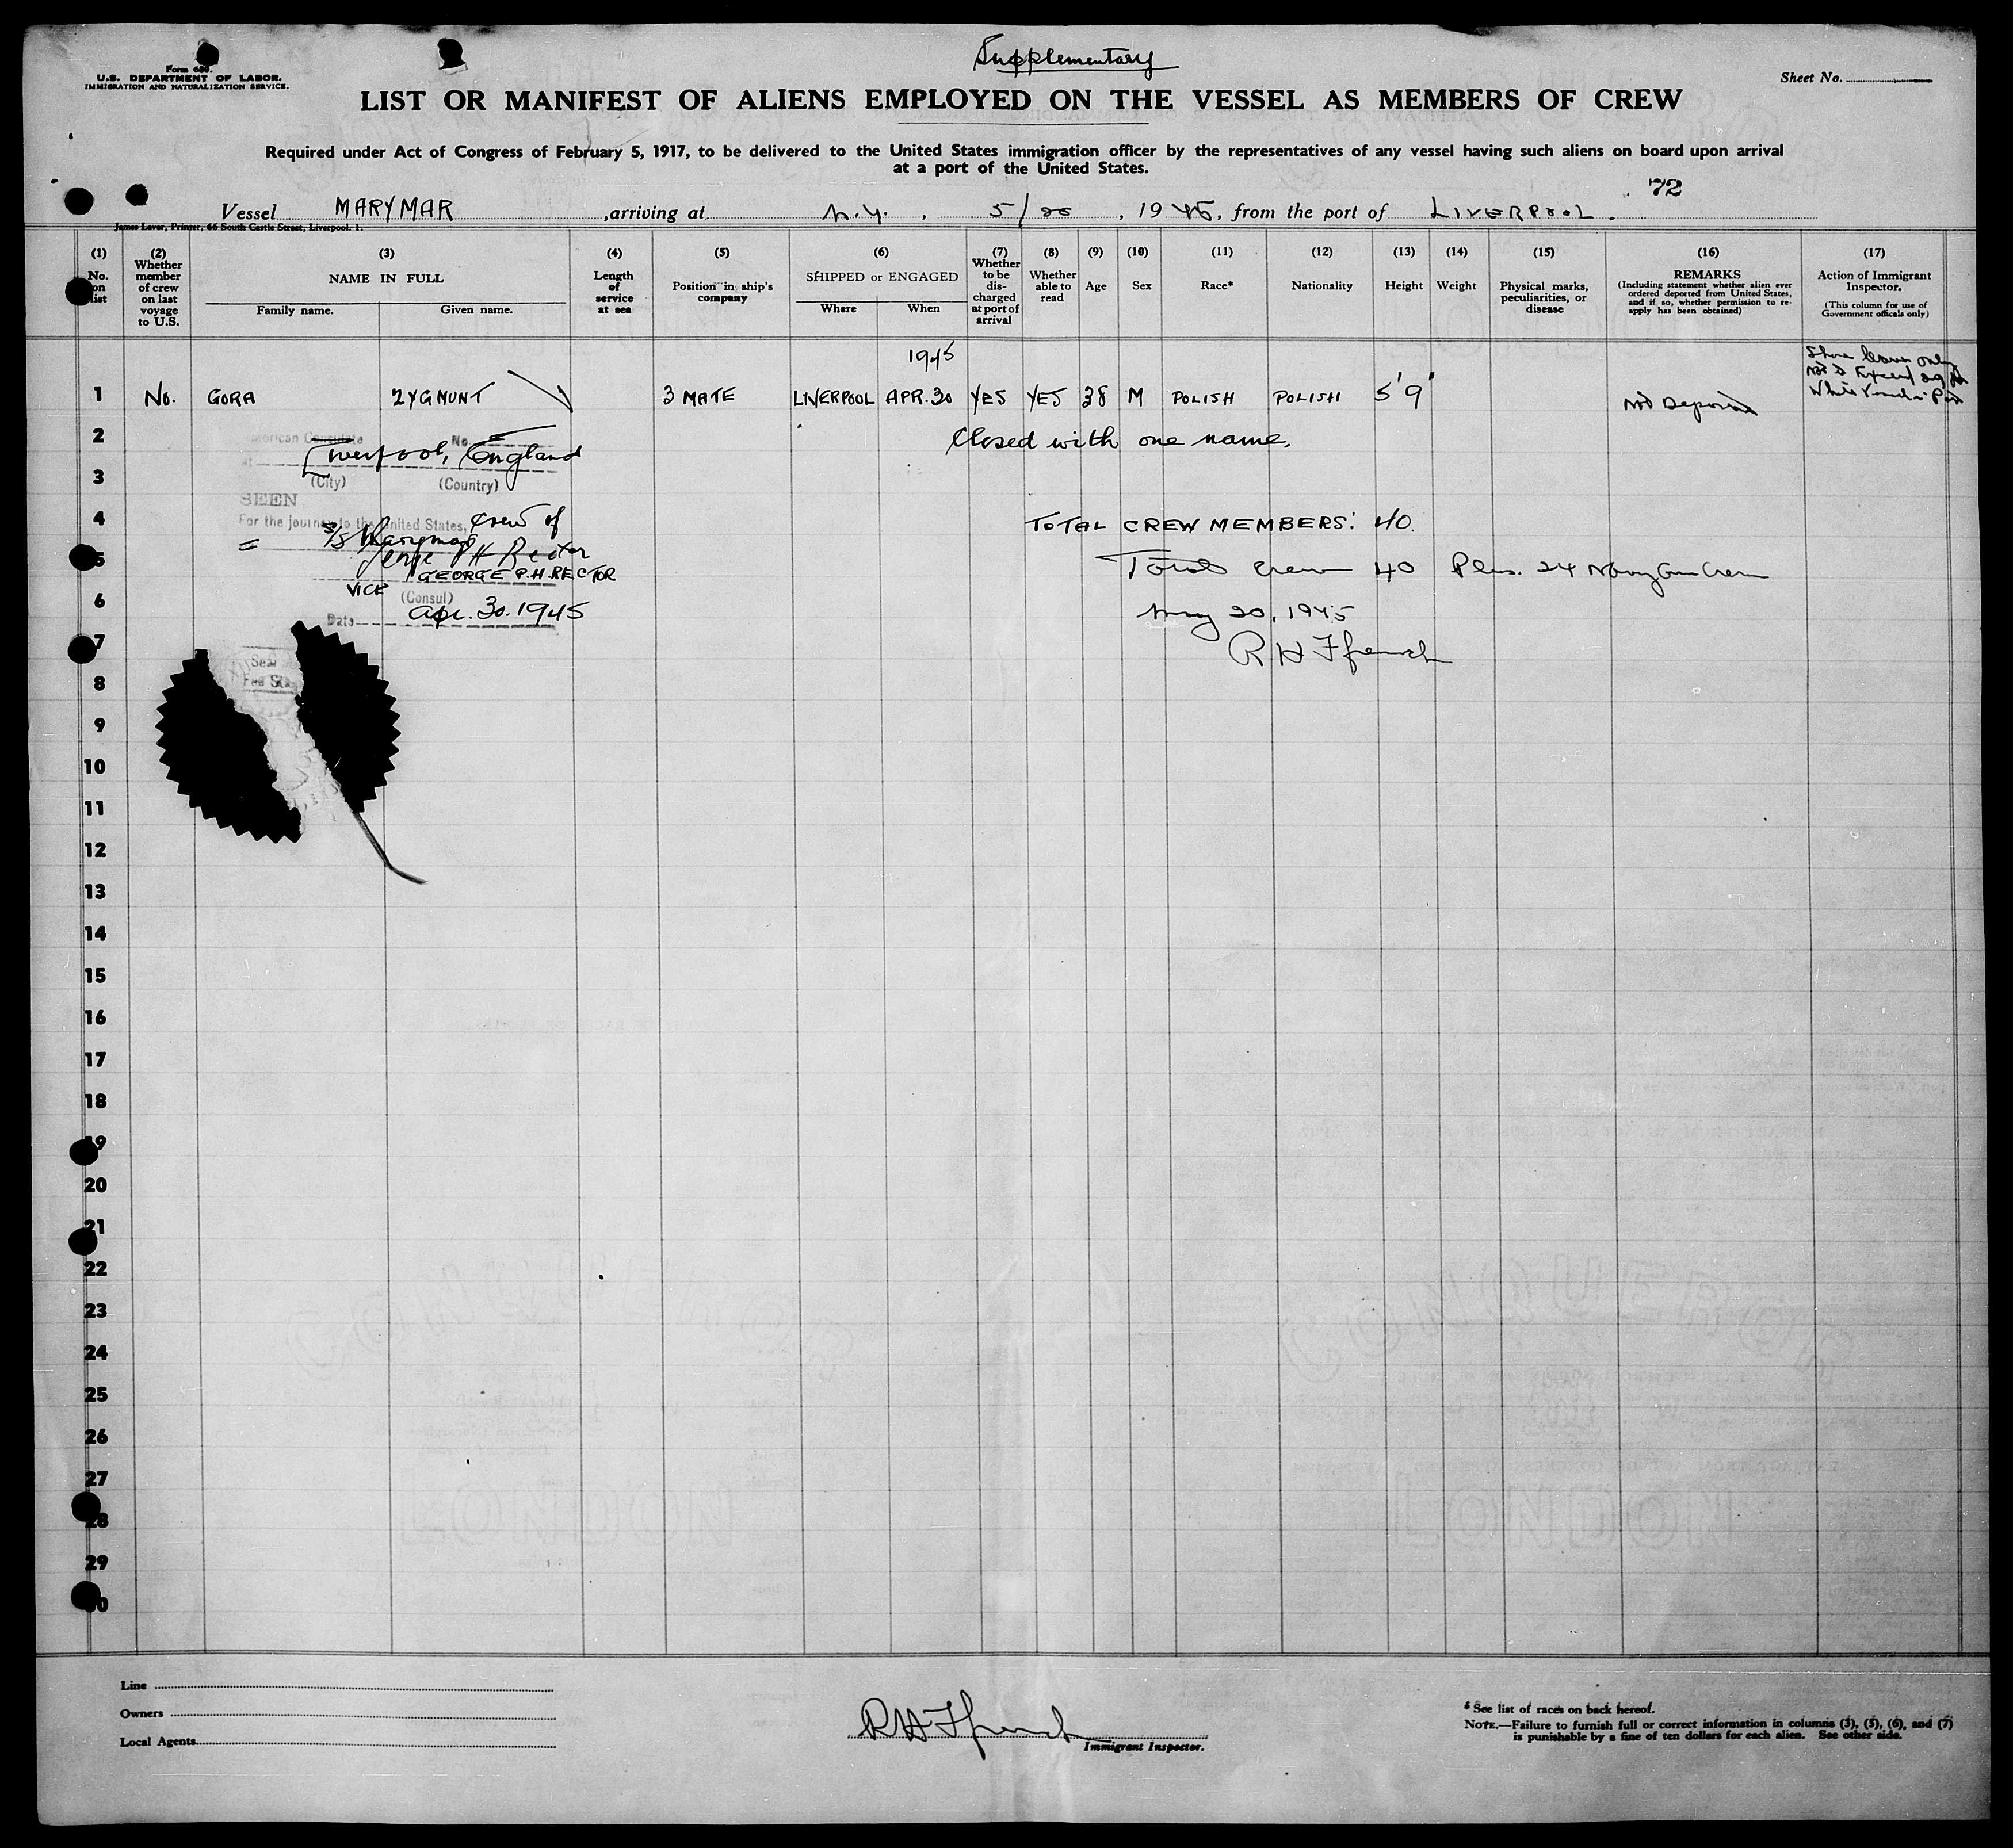 Supplementary
Form 680.
U.S. DEPARTMENT OF LABOR.
IMMIGRATION AND NATURALIZATION SERVICE.
Sheet No.
LIST OR MANIFEST OF ALIENS EMPLOYED ON THE VESSEL AS MEMBERS OF CREW
Required under Act of Congress of February 5, 1917, to be delivered to the United States immigration officer by the representatives of any vessel having such aliens on board upon arrival
at a port of the United States.
72
Vessel MARYMAR, arriving at N.Y., 5/20, 1945, from the port of LIVERPOOL.
James Laver, Printer, 66 South Castle Street, Liverpool. 1.
(1) No. on list
(2) Whether member of crew on last voyage to U.S.
(3) NAME IN FULL Family name. Given name.
(4) Length of service at sea
(5) Position in ship's company
(6) SHIPPED or ENGAGED Where When
(7) Whether to be discharged at port of arrival
(8) Whether able to read
(9) Age
(10) Sex
(11) Race*
(12) Nationality
(13) Height
(14) Weight
(15) Physical marks, peculiarities, or disease
(16) REMARKS (Including statement whether alien ever ordered deported from United States, and if so, whether permission to re-apply has been obtained)
(17) Action of Immigrant Inspector. (This column for use of Government officials only)
1945
Shore leave only
not to Exceed 29
While Vessel in Port
1 No. GORA ZYGMUNT 3 MATE LIVERPOOL APR. 30 YES YES 38 M POLISH POLISH 5' 9" Not Deported
2 Closed with one name.
American Consulate No.
at Liverpool, England
3
(City) (Country)
SEEN
4 TOTAL CREW MEMBERS: 40.
For the journey to the United States, crew of
S/S Marymar
George P H Rector
5 Total crew 40 Plus. 24 Navy Gun Crew
GEORGE P.H. RECTOR
VICE (Consul)
6 May 20, 1945
Date Apr. 30. 1945
7 R H Ffrench
Seal
Fee Sta
8
9
10
11
12
13
14
15
16
17
18
19
20
21
22
23
24
25
26
27
28
29
30
Line
Owners
Local Agents
R H Ffrench
Immigrant Inspector.
* See list of races on back hereof.
NOTE.—Failure to furnish full or correct information in columns (3), (5), (6), and (7)
is punishable by a fine of ten dollars for each alien. See other side.